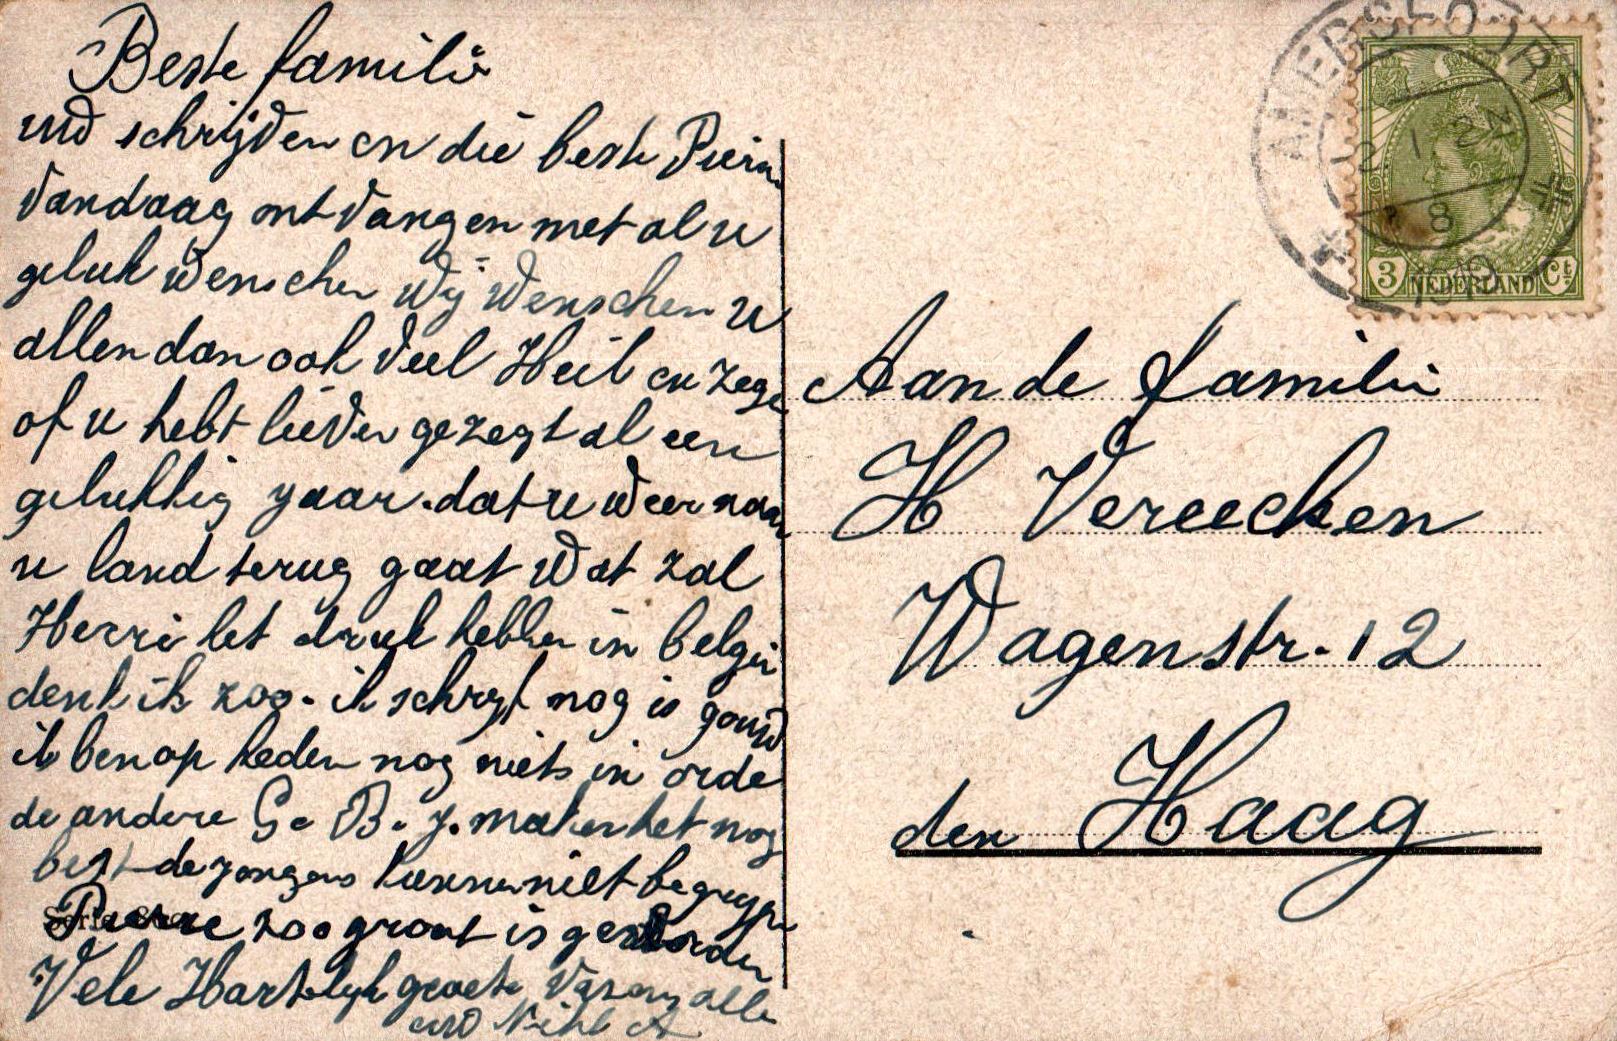 Beste familie
uw schrijven en die beste Pierre
vandaag ontvangen met al u
geluk wenschen Wij wenschen u
allen dan ook veel Heil en zege
of u hebt liever gezegt al een
gelukkig yaar. dat u weer naar
u land terug gaat Wat zal
Herri het druk hebben in belgie
denk ik zoo. ik schryf nog is gouw
ik ben op heden nog niets in orde
de andere G. B. J. maken het nog
best de jongens kunnen niet begrypen
Pierre zoo groot is geworden
Vele Hartelyk groete van ons alle
uw
AMERSFOORT
2.1.23
8
1919
3 NEDERLAND Ct
Aan de familie
H Vereecken
Wagenstr. 12
den Haag